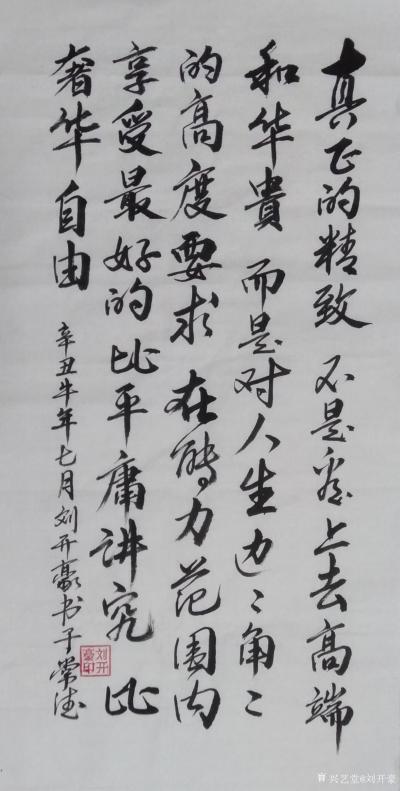 真正的精致 不是看上去高端
和华貴 而是对人生边々角々
的高度要求 在能力范围内
享受最好的比平庸讲究比
奢华自由
辛丑牛年七月刘开豪书于常德
刘开
豪印
兴艺堂@刘开豪